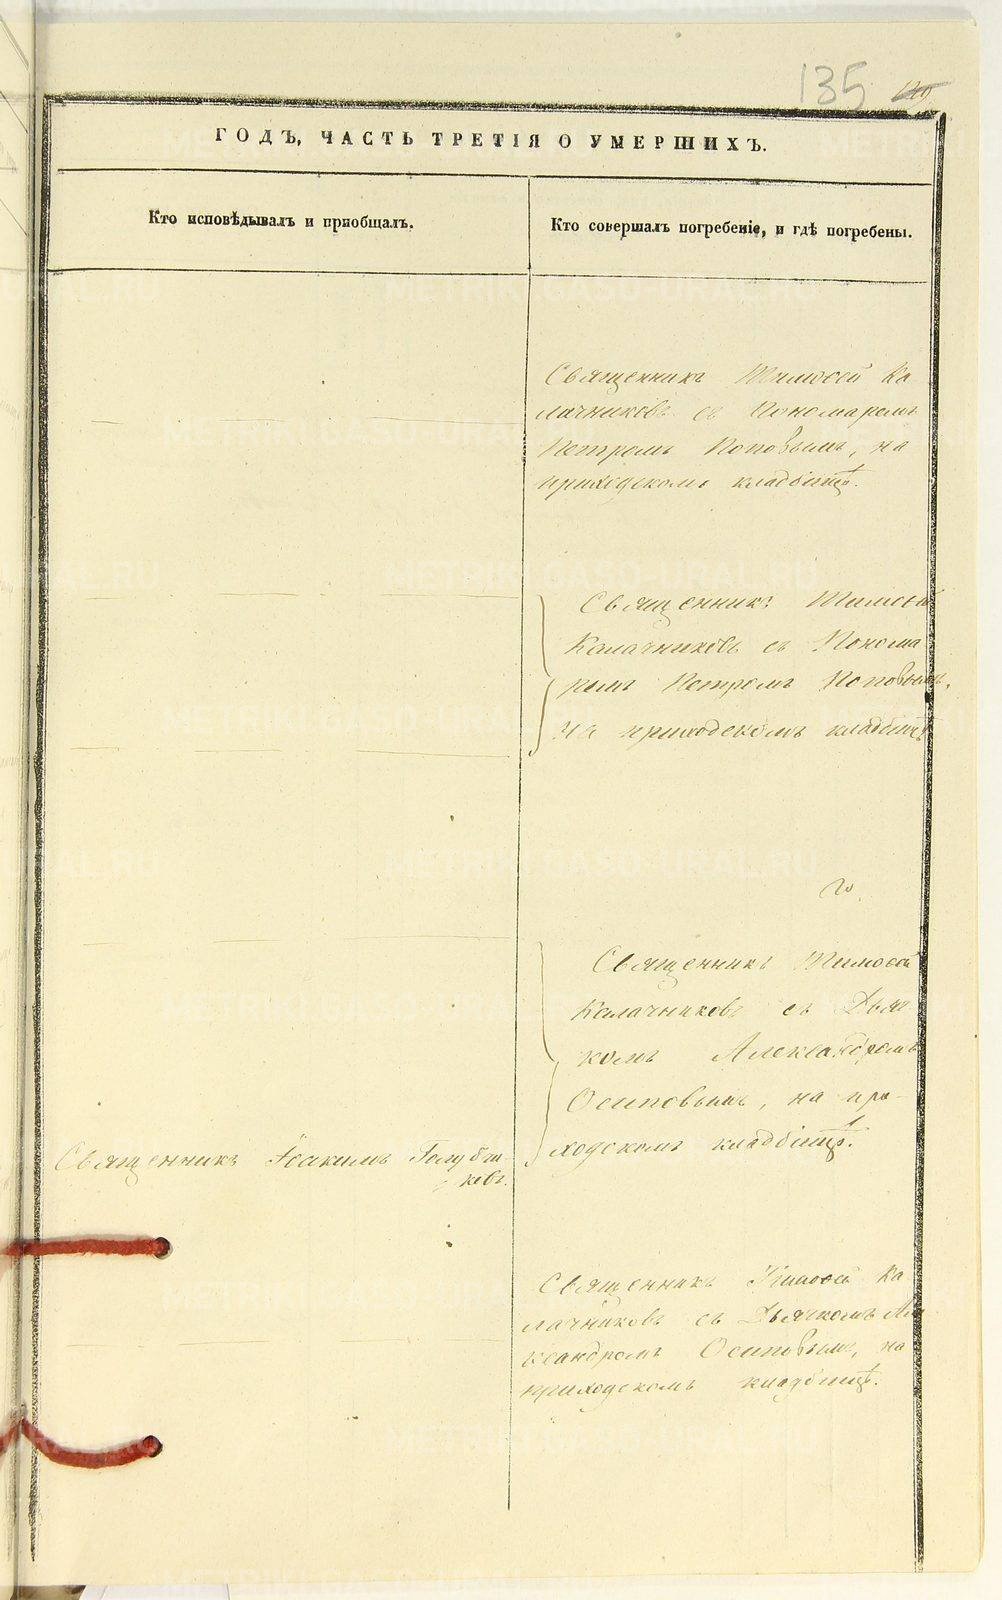 135
ГОДЪ, ЧАСТЬ ТРЕТІЯ О УМЕРШИХЪ.
Кто исповѣдывалъ и пріобщалъ.
Кто совершалъ погребеніе, и гдѣ погребены.
Священникъ Тимофей Ка
лачниковъ съ Пономаремъ
Петромъ Поповымъ, на
приходскомъ кладбищѣ.
Священникъ Тимофей
Калачниковъ съ Понома
ремъ Петромъ Поповымъ,
на приходскомъ кладбищѣ
Священникъ Тимофей
Калачниковъ съ Дьяч
комъ Александромъ
Осиповымъ, на при-
ходскомъ кладбищѣ.
Священникъ Іоакимъ Голубчи-
ковъ.
Священникъ Тимофей Ка
лачниковъ съ Дьячкомъ Але
ксандромъ Осиповымъ, на
приходскомъ кладбищѣ.
METRIKI.GASO-URAL.RU